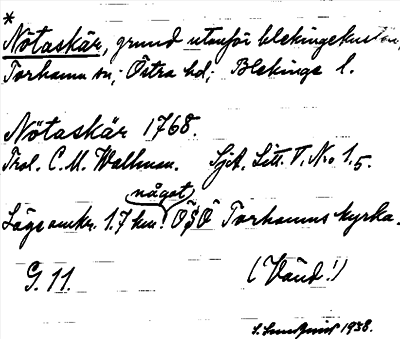 *
Nötaskär, grund utanför blekingekusten,
Torhamn sn; Östra hd; Blekinge l.
Nötaskär 1768.
Trol. C. M. Wallman. Sjk. Litt. V. No 1,5.
något
Läge omkr. 1.7 km. ÖSÖ Torhamns kyrka.
G. 11. (Vänd!)
S. Sundquist 1938.